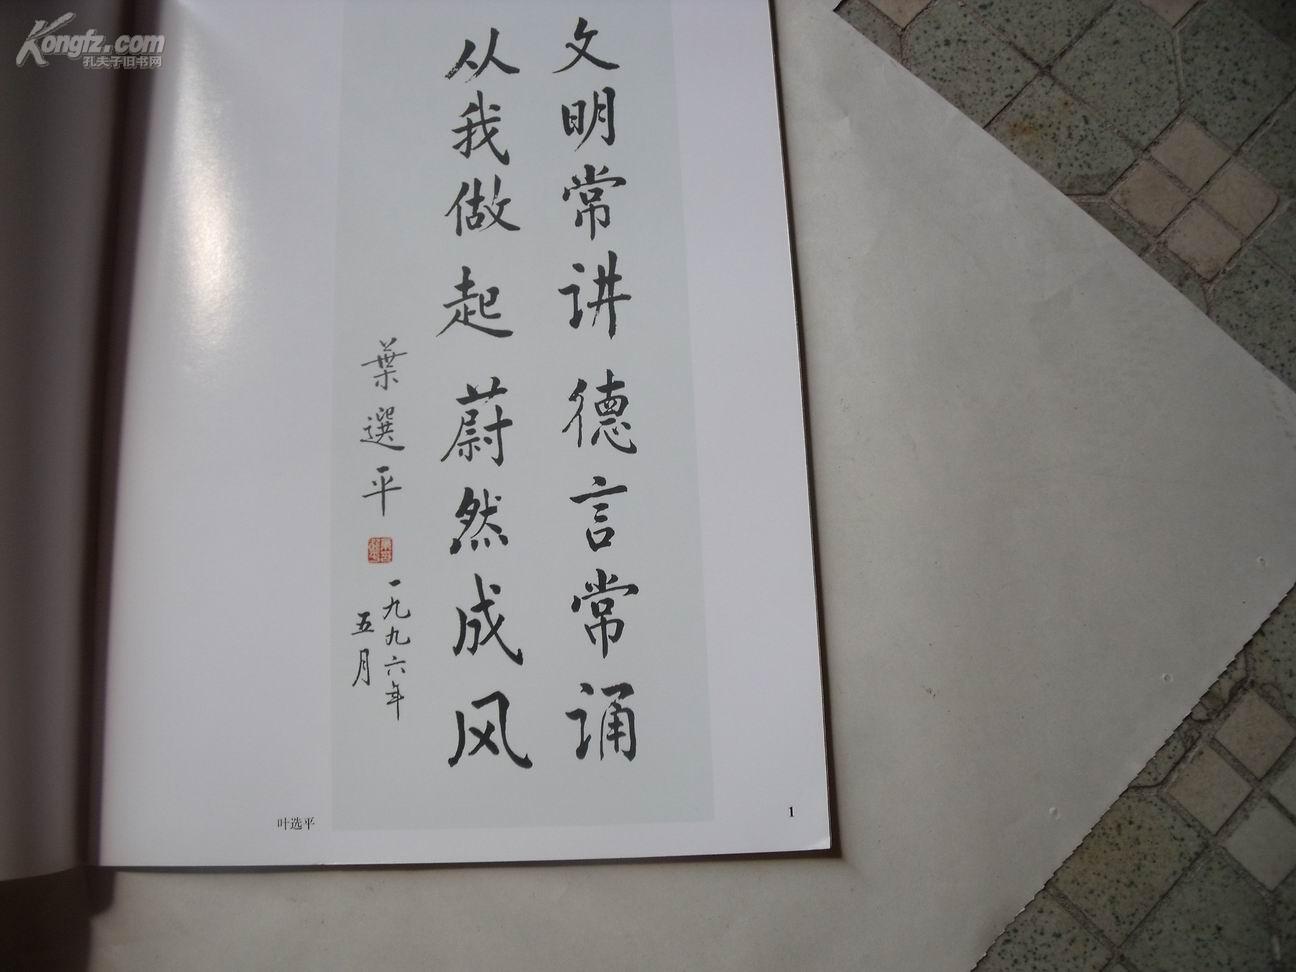 Kongfz.com
孔夫子旧书网
文明常讲德言常诵
从我做起蔚然成风
葉選平
一九九六年
五月
叶选平
1